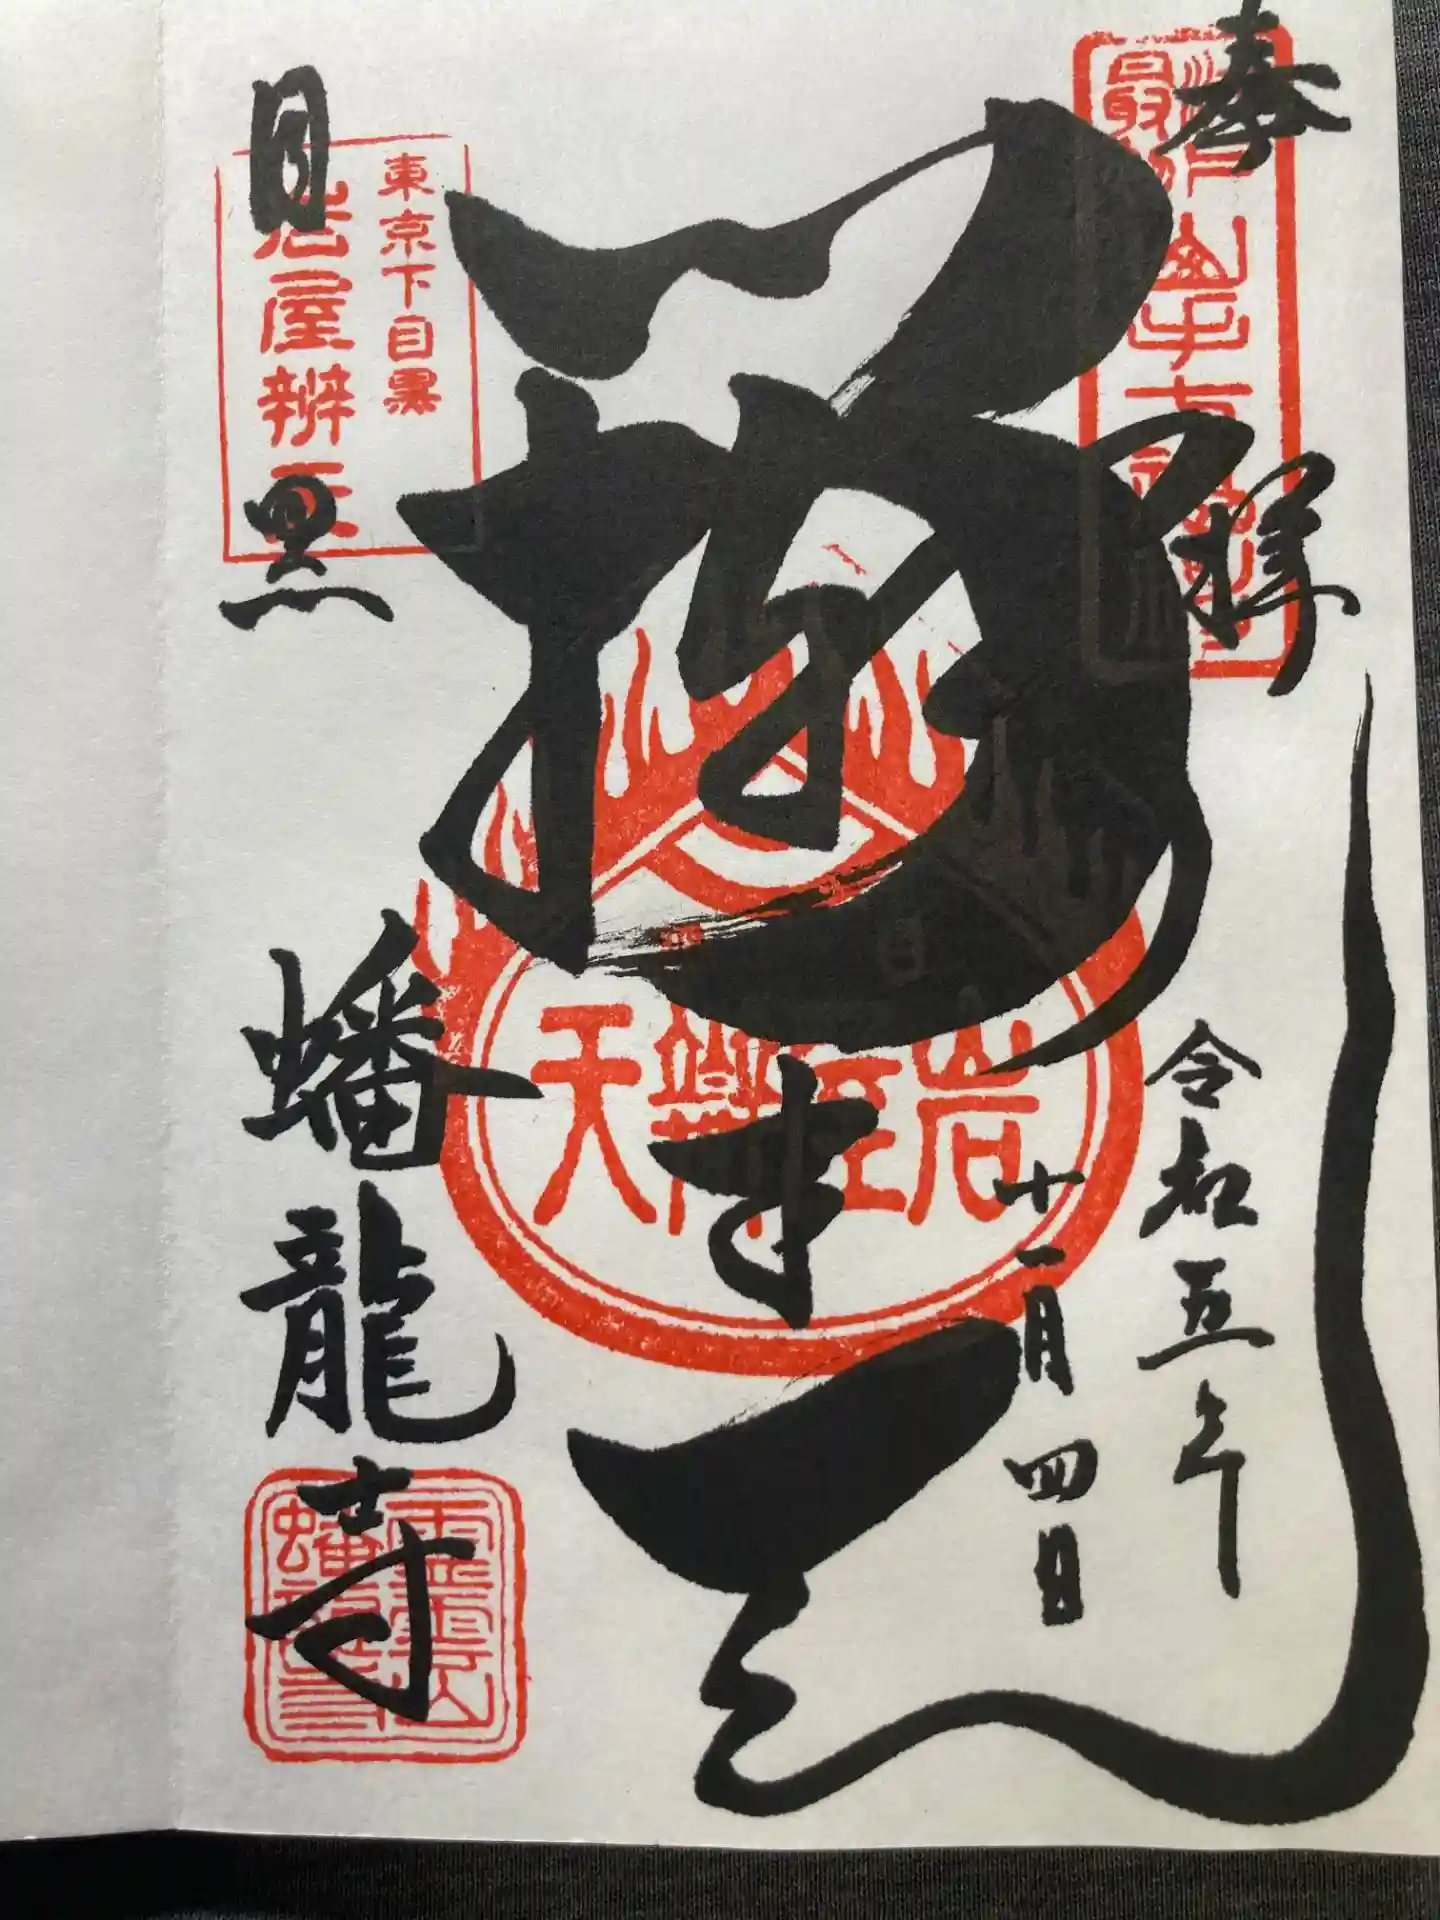 奉拝
令和五年
十一月四日
弁才天
岩屋辨天
東京下目黒
岩屋辨天
目黒
蟠龍寺
霊雲山
蟠龍寺